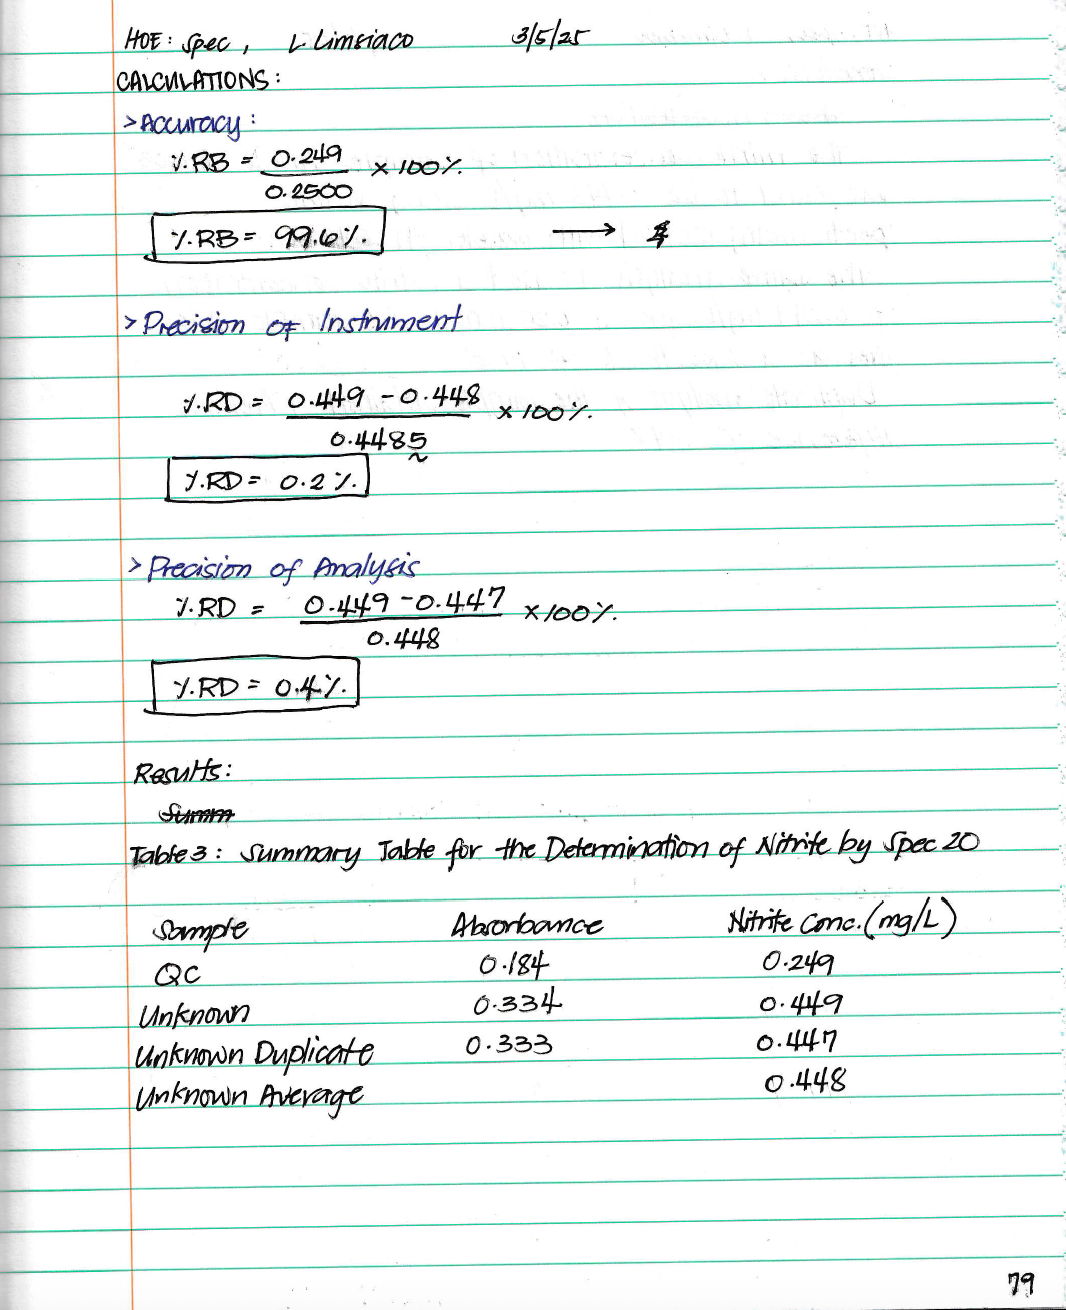 HOE: Spec, L. Limsiaco 3/5/25
CALCULATIONS:
> Accuracy:
%RB = 0.249 / 0.2500 × 100%
%RB = 99.6%
→
> Precision of Instrument
%.RD = 0.449 - 0.448 / 0.4485 × 100%
%.RD = 0.2%
> Precision of Analysis
%.RD = 0.449 - 0.447 / 0.448 × 100%
%.RD = 0.4%
Results:
Summ
Table 3: Summary Table for the Determination of Nitrite by Spec 20
Sample Absorbance Nitrite Conc. (mg/L)
QC 0.184 0.249
Unknown 0.334 0.449
Unknown Duplicate 0.333 0.447
Unknown Average 0.448
79